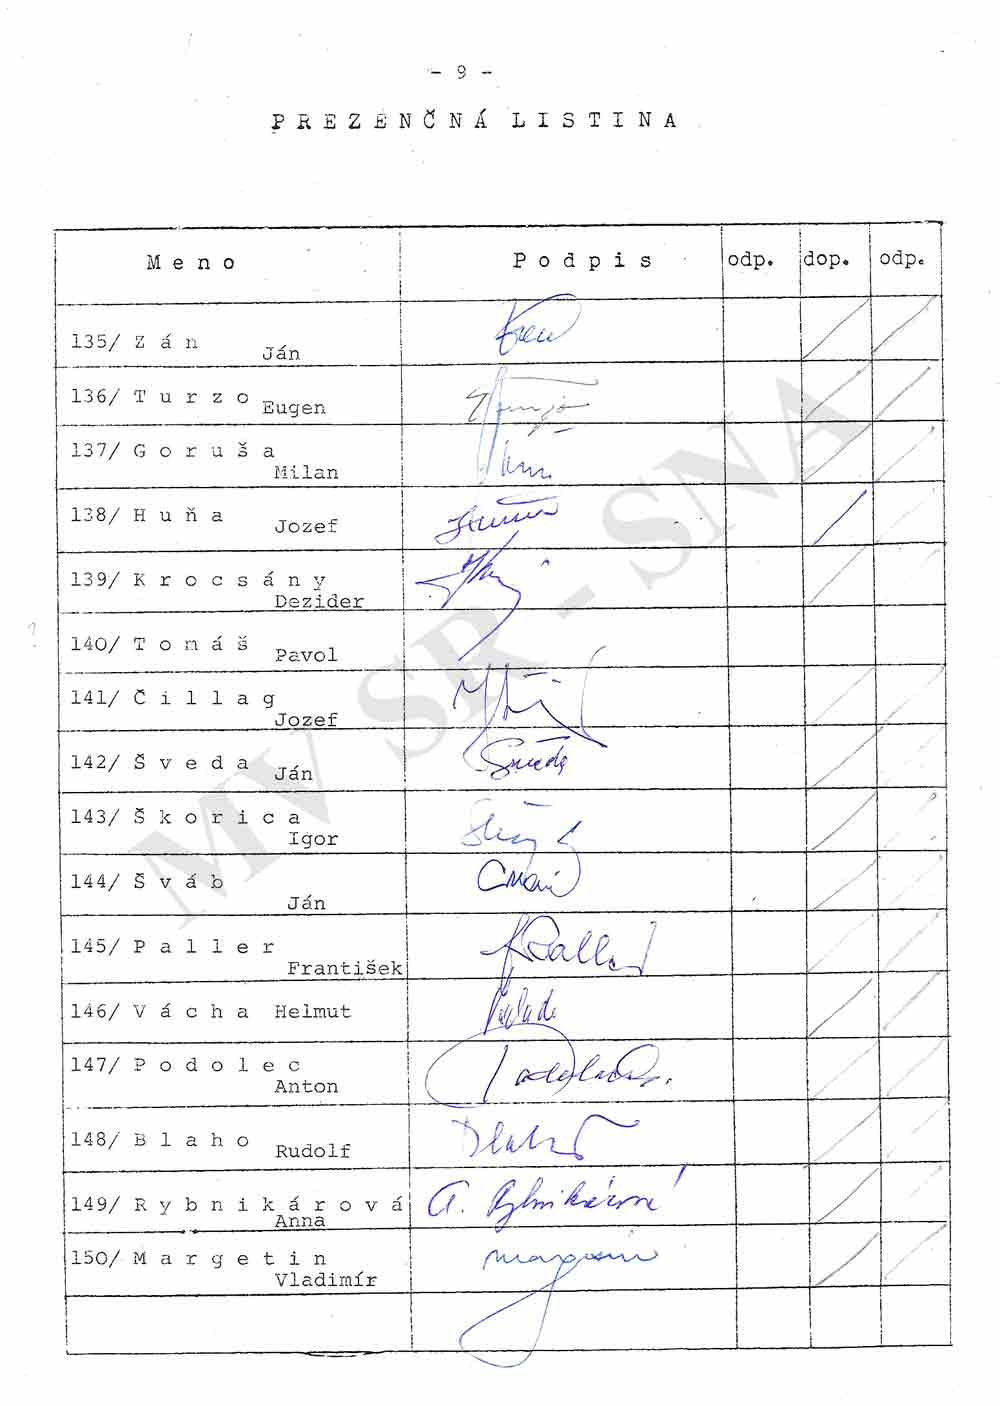 - 9 -
PREZENČNÁ LISTINA
Meno Podpis odp. dop. odp.
135/ Zán
Ján
136/ Turzo
Eugen
137/ Goruša
Milan
138/ Huňa
Jozef
139/ Krocsány
Dezider
140/ Tomáš
Pavol
141/ Čillag
Jozef
142/ Šveda
Ján
143/ Škorica
Igor
144/ Šváb
Ján
145/ Paller
František
146/ Vácha Helmut
147/ Podolec
Anton
148/ Blaho
Rudolf
149/ Rybnikárová A. Rybnikárová
Anna
150/ Margetin
Vladimír
MV SR - SNA